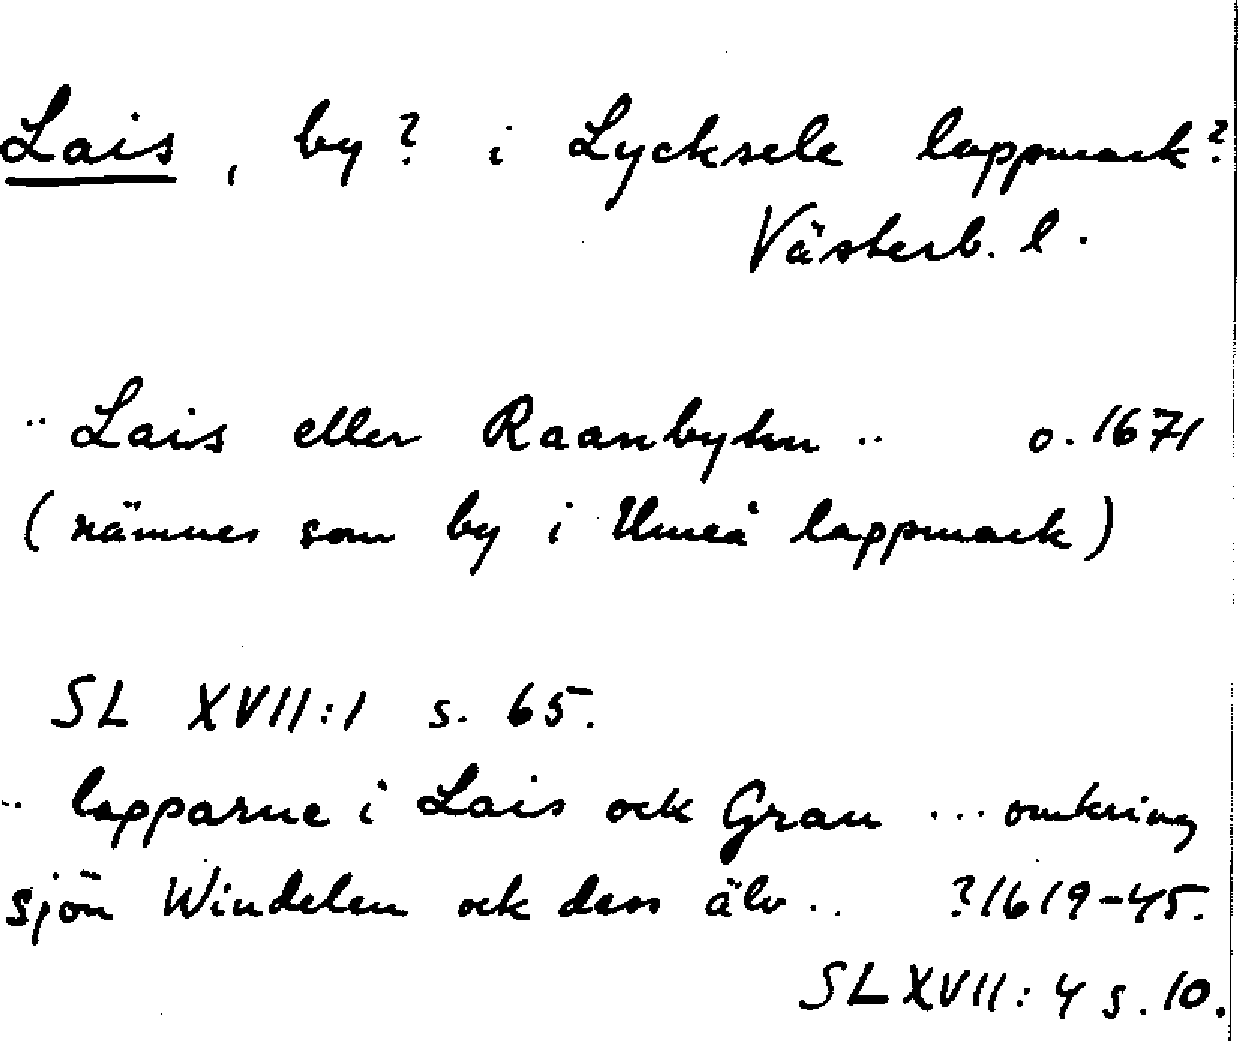 Lais, by? i Lycksele lappmark?
Västerb. l.
.. Lais eller Raanbyhn .. o. 1671
(nämnes som by i Umeå lappmark)
SL XVII:1 s. 65.
.. lapparne i Lais ock Gran ... omkring
sjön Windelen ock dess älv .. ?1619-45.
SL XVII: 4 s. 10.